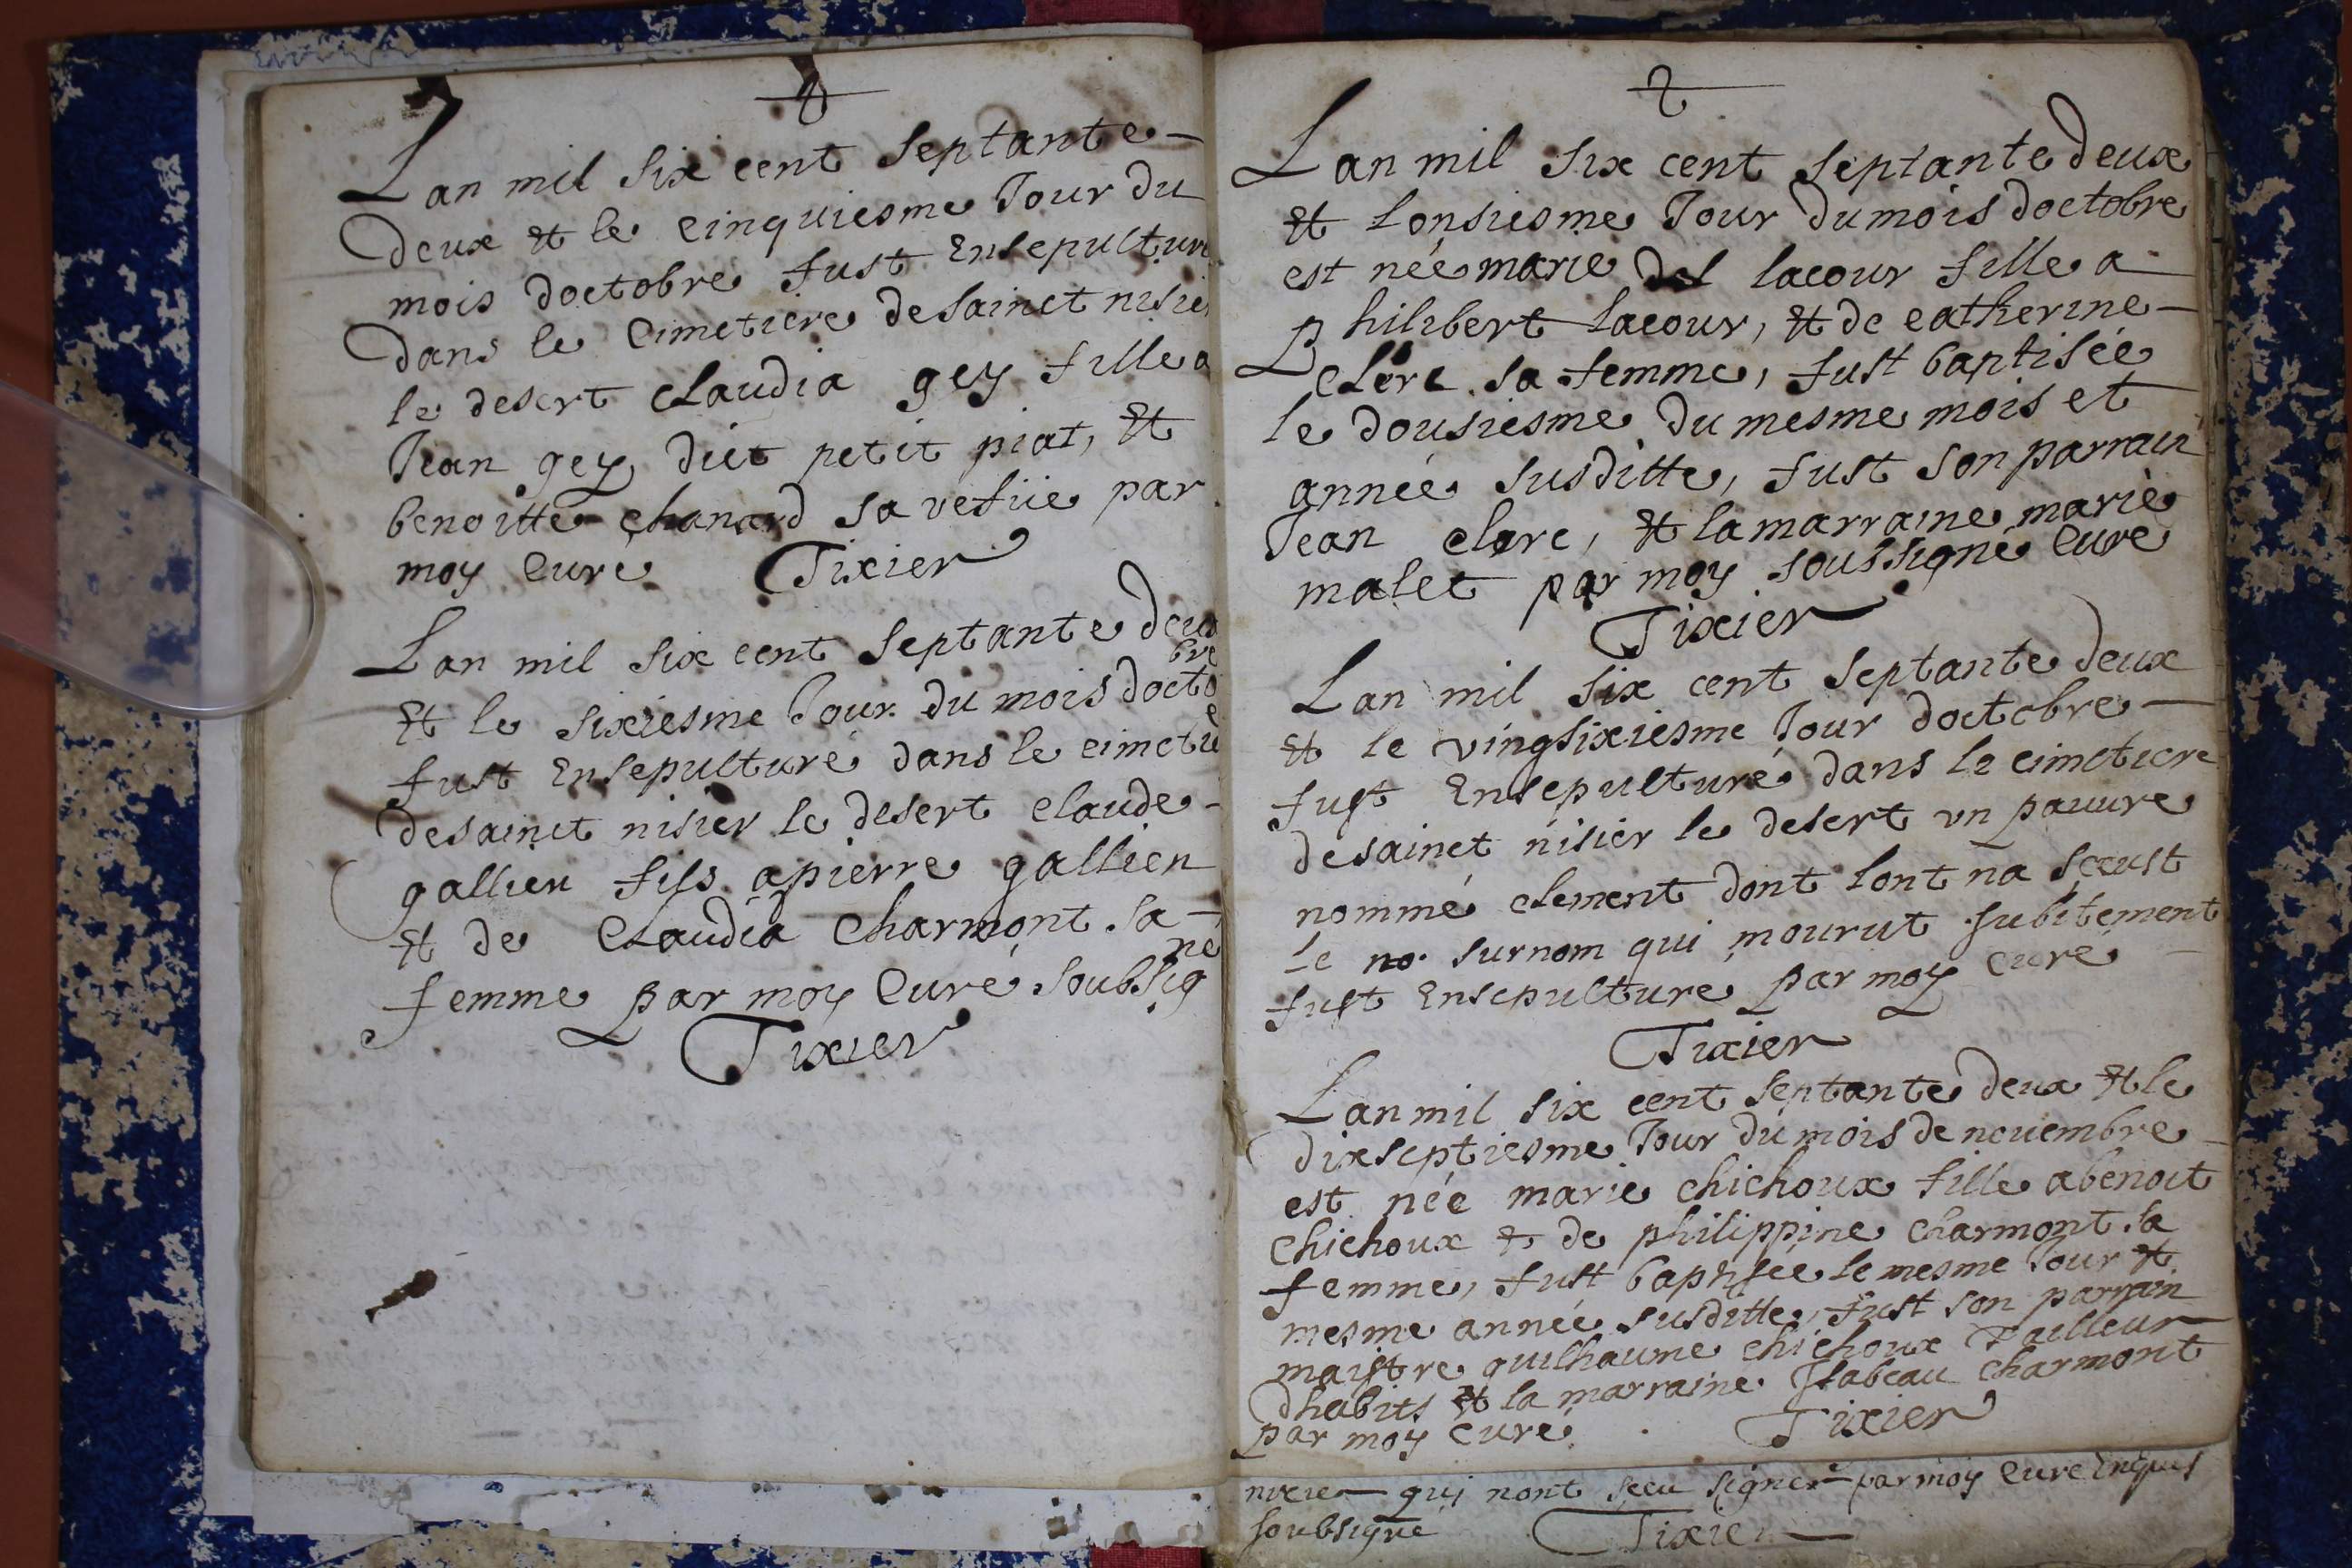 Lan mil six cent septante
deux et le cinquiesme Jour du
mois doctobre fust Ensepulture
dans le Cimetiere desainct nisier
le desert claudia gey fille a
Jean gey dict petit piat, et
benoitte chanard sa vefue par
moy Curé Tixier
Lan mil six cent septante deux
et le sixiesme Jour du mois doctobre
fust Ensepulturé dans le cimetiere
desainct nisier le desert claude
gallien fils apierre gallien
et de Claudia Charmont sa
femme par moy Curé soubsigné
Tixier
Lan mil six cent septante deux
et lonsiesme Jour dumois doctobre
est née marie lacour fille a
philibert lacour, et de catherine
clerc sa femme, fust baptisée
le dousiesme du mesme mois et
année susditte, fust son parrain
Jean clerc, et lamarraine marie
malet par moy soussigné Curé
Tixier
Lan mil six cent septante deux
et le vingsixiesme Jour doctobre
fust Ensepulturé dans le cimetiere
desainct nisier le desert un pauure
nommé clement dont lont na sceust
le no. surnom qui mourut subitement
fust Ensepulturé par moy Curé
Tixier
Lanmil six cent septante deux et le
dixseptiesme Jour du mois de nouembre
est née marie chichoux fille abenoit
Chichoux et de philippine charmont sa
femme, fust baptisée le mesme Jour et
mesme année susditte, fust son parrain
maistre guilhaume chichoux Tailleur
dhabits et la marraine Isabeau charmont
par moy Curé Tixier
qui nont sceu signer par moy Curé
soubsigné Tixier